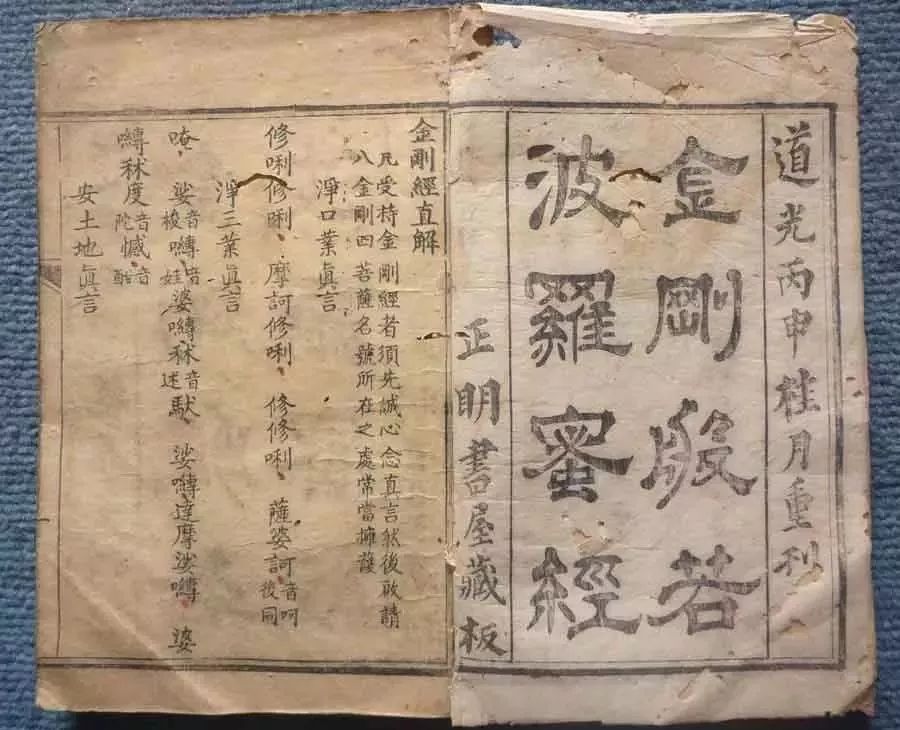 道光丙申桂月重刊
金剛般若
波羅蜜經
正明書屋藏板
金剛經直解
凡受持金剛經者須先誠心念真言然後啟請
八金剛四菩薩名號所在之處常當擁護
淨口業眞言
修唎修唎、摩訶修唎、修修唎、薩婆訶音呵後同
淨三業眞言
唵、娑音梭嚩音娃婆嚩秫音述馱、娑嚩達摩娑嚩、婆
嚩秫度音陀憾、音酣
安土地眞言